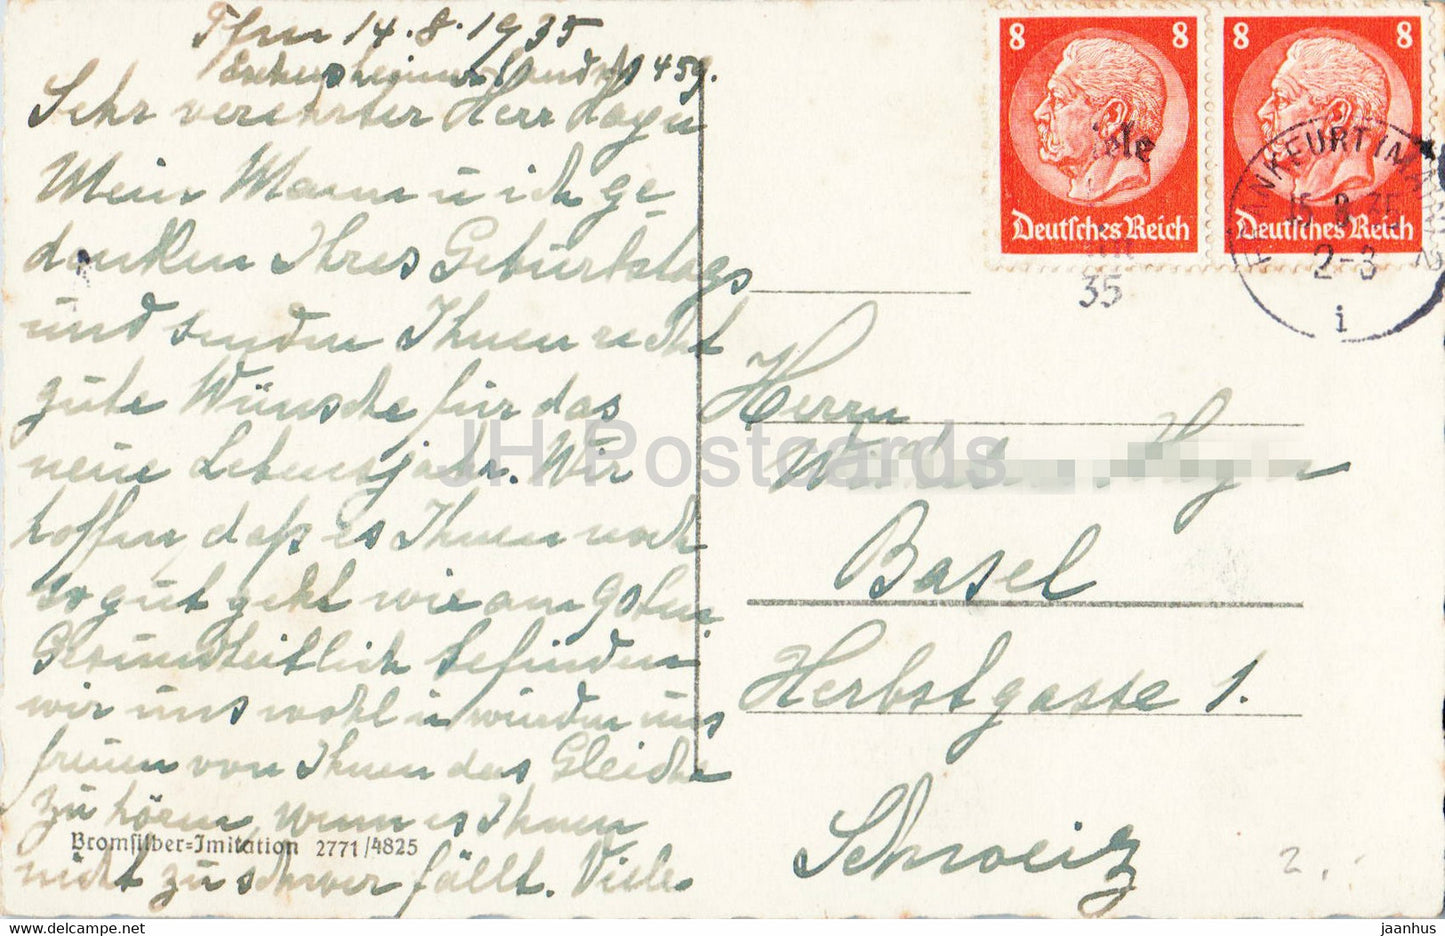 Ffm 14.8.1935
Eschersheimer Landstr 459.
Sehr verehrter Herr Hagen
Mein Mann u ich ge-
denken Ihres Geburtstags
und senden Ihnen recht
gute Wünsche für das
neue Lebensjahr. Wir
hoffen, daß es Ihnen noch
so gut geht wie am 90ten.
Gesundheitlich befinden
wir uns wohl u würden uns
freuen von Ihnen das Gleiche
zu hören, wenn es Ihnen
nicht zu schwer fällt. Viele
Bromsilber-Imitation 2771/4825
8 8
Deutsches Reich
8 8
Deutsches Reich
35
FRANKFURT (MAIN) 2
15.8.35
2-3
i
Herrn
Basel
Herbstgasse 1.
Schweiz
2.-
JH Postcards
www.delcampe.net
jaanhus